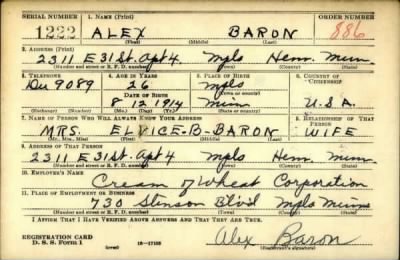 SERIAL NUMBER 1. NAME (Print) ORDER NUMBER
1222 ALEX BARON 886
(First) (Middle) (Last)
2. ADDRESS (Print)
2311 E 31 St. Apt 4 Mpls Henn. Minn.
(Number and street or R. F. D. number) (Town) (County) (State)
3. TELEPHONE 4. AGE IN YEARS 5. PLACE OF BIRTH 6. COUNTRY OF CITIZENSHIP
Du 9089 26 Mpls
DATE OF BIRTH (Town or county)
8 12 1914 Minn U.S.A.
(Exchange) (Number) (Mo.) (Day) (Yr.) (State or country)
7. NAME OF PERSON WHO WILL ALWAYS KNOW YOUR ADDRESS 8. RELATIONSHIP OF THAT PERSON
MRS. ELVICE-B-BARON WIFE
(Mr., Mrs., Miss) (First) (Middle) (Last)
9. ADDRESS OF THAT PERSON
2311 E 31 St. Apt 4 Mpls Henn. Minn.
(Number and street or R. F. D. number) (Town) (County) (State)
10. EMPLOYER'S NAME
Cream of Wheat Corporation
11. PLACE OF EMPLOYMENT OR BUSINESS
730 Stinson Blvd Mpls Minn
(Number and street or R. F. D. number) (Town) (County) (State)
I AFFIRM THAT I HAVE VERIFIED ABOVE ANSWERS AND THAT THEY ARE TRUE.
REGISTRATION CARD
D. S. S. Form 1 (over) 16-17105 Alex Baron
(Registrant's signature)